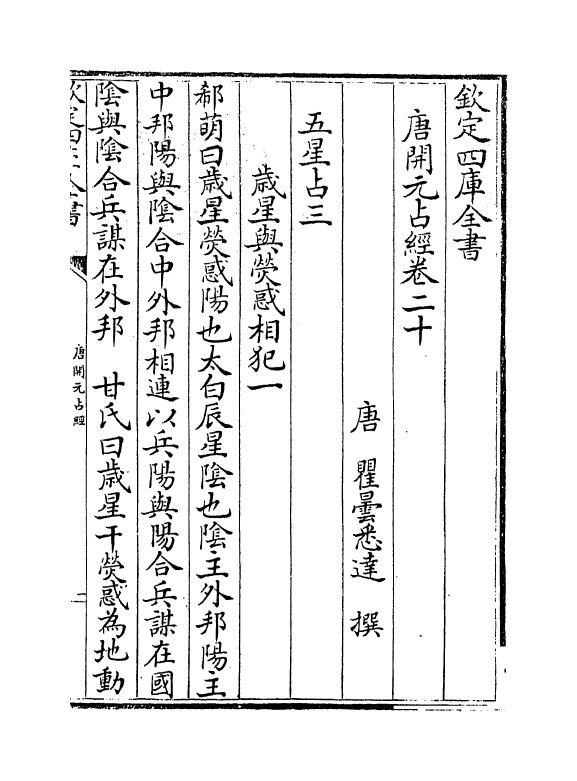 欽定四庫全書
唐開元占經卷二十
唐　瞿曇悉達　撰
五星占三
歲星與熒惑相犯一
郗萌曰歲星熒惑陽也太白辰星陰也陰主外邦陽主
中邦陽與陰合中外邦相連以兵陽與陽合兵謀在國
陰與陰合兵謀在外邦　甘氏曰歲星干熒惑為地動
欽定四庫全書
唐開元占經